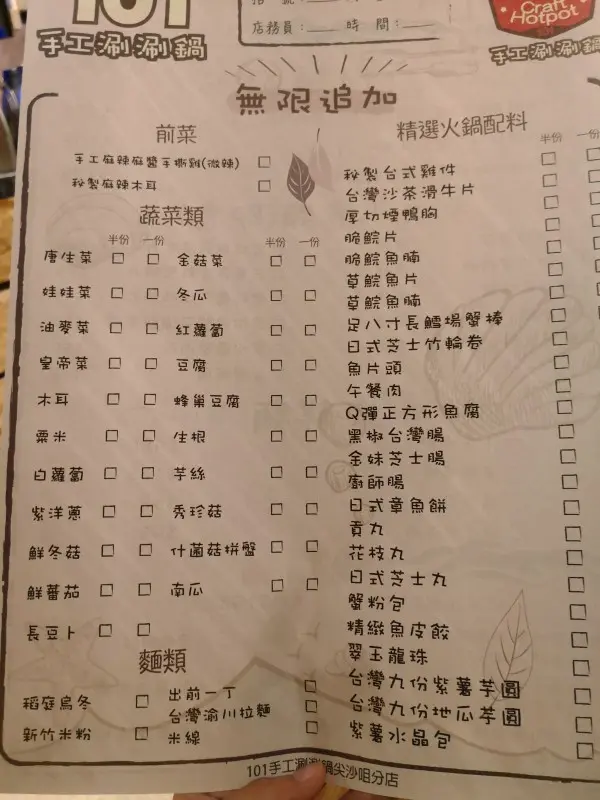 101
手工涮涮鍋
店務員：____ 時 間：____
Craft
Hotpot
手工涮涮鍋
無限追加
前菜
手工麻辣麻醬手撕雞(微辣) □
秘製麻辣木耳 □
蔬菜類
半份 一份 半份 一份
唐生菜 □ □ 金菇菜 □ □
娃娃菜 □ □ 冬瓜 □ □
油麥菜 □ □ 紅蘿蔔 □ □
皇帝菜 □ □ 豆腐 □ □
木耳 □ □ 蜂巢豆腐 □ □
粟米 □ □ 生根 □ □
白蘿蔔 □ □ 芋絲 □ □
紫洋蔥 □ □ 秀珍菇 □ □
鮮冬菇 □ □ 什菌菇拼盤 □ □
鮮蕃茄 □ □ 南瓜 □ □
長豆卜 □ □
麵類
稻庭烏冬 □ 出前一丁 □
台灣渝川拉麵 □
新竹米粉 □ 米線 □
精選火鍋配料
半份
秘製台式雞件 □
台灣沙茶滑牛片 □
厚切煙鴨胸 □
脆鯇片 □
脆鯇魚腩 □
草鯇魚片 □
草鯇魚腩 □
足八寸長鱈場蟹棒 □
日式芝士竹輪卷 □
魚片頭 □
午餐肉 □
Q彈正方形魚腐 □
黑椒台灣腸 □
金妹芝士腸 □
廚師腸 □
日式章魚餅 □
貢丸 □
花枝丸 □
日式芝士丸 □
蟹粉包 □
精緻魚皮餃 □
翠玉龍珠 □
台灣九份紫薯芋圓 □
台灣九份地瓜芋圓 □
紫薯水晶包 □
101手工涮涮鍋尖沙咀分店